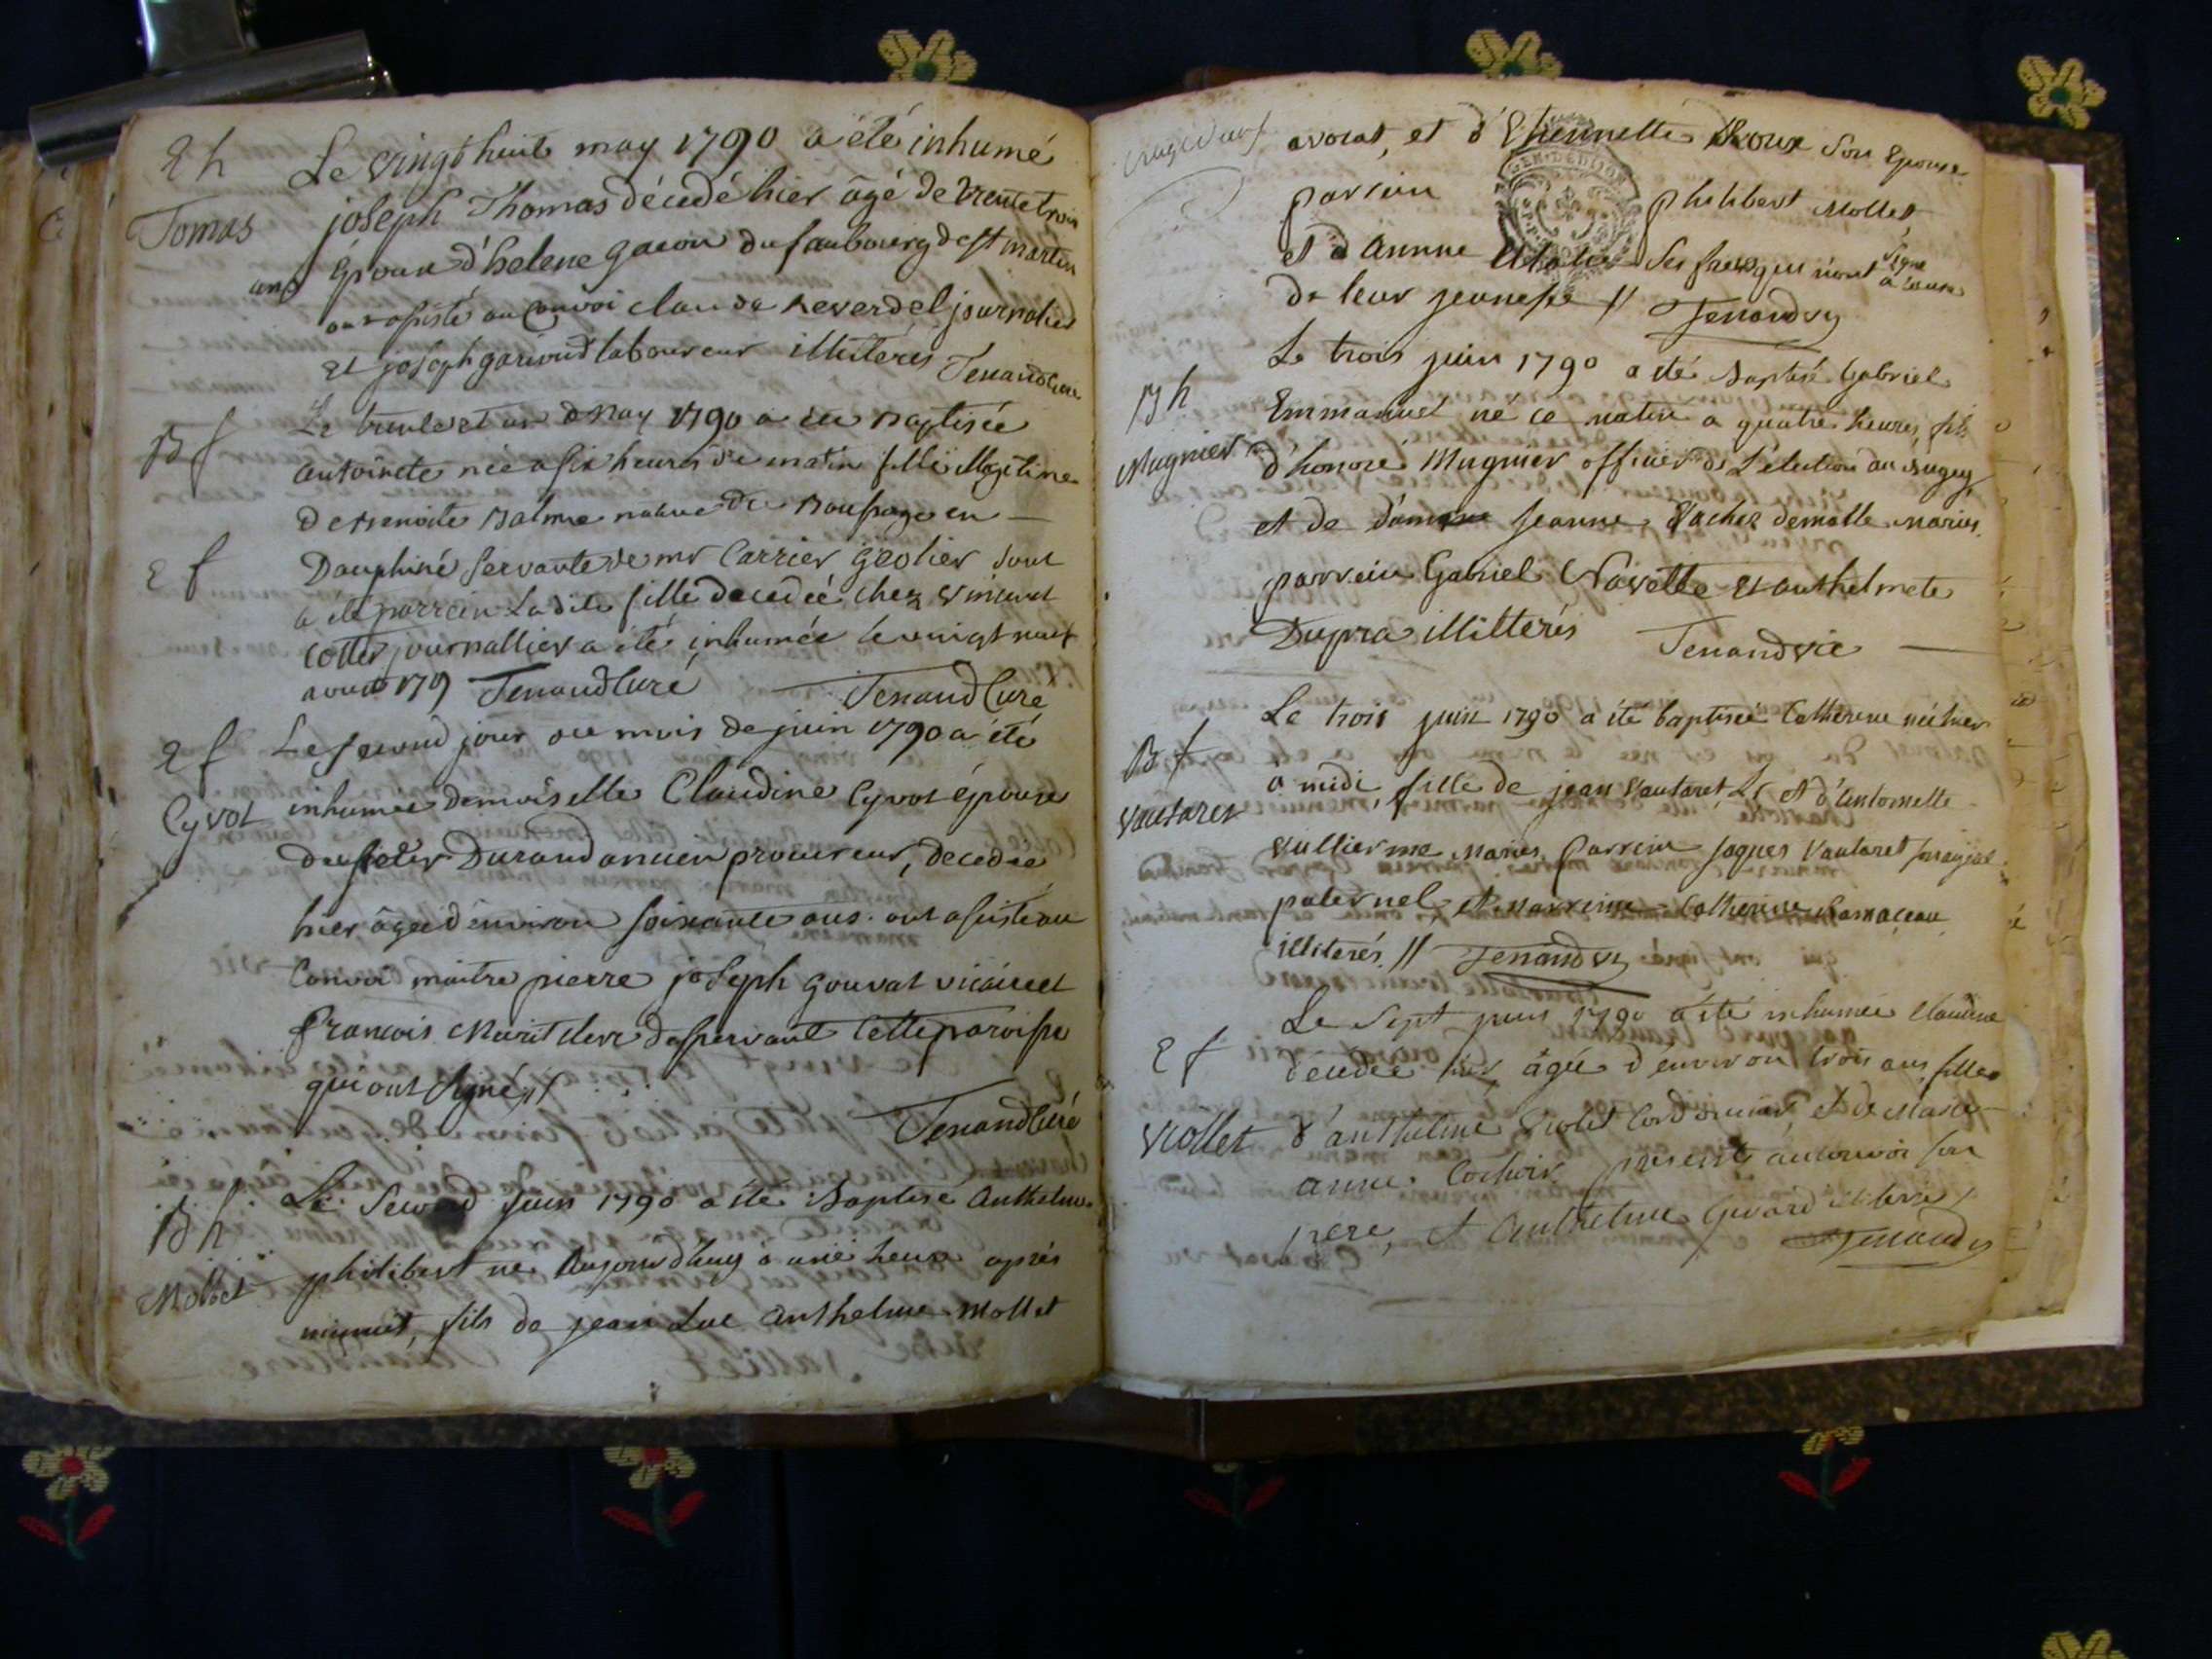 E h
Tomas
Le vingt huit may 1790 a été inhumé
joseph Thomas décedé hier âgé de trente trois
ans Epoux d'helene gacon du faubourg de st martin
ont assisté au convoi claude Reverdel journalier
et joseph garioud laboureur illiterés Tenand Curé
B f
Le trente et un may 1790 a été Baptisée
antoinete née a six heures de matin fille illegitime
de Benoite Balme native de
E f
Dauphiné servante de mr Carrier geolier
a été parrein Ladite fille decedée chez vincent
cottet journallier a été inhumée le vingt neuf
aoust 179 Tenand Curé Tenand Curé
E f
Cyvot
Le second jour du mois de juin 1790 a été
inhumée demoiselle Claudine Cyvot épouse
du sieur Durand ancien procureur, decedée
hier âgée d'environ soixante ans. ont assisté au
Convoi maitre pierre joseph gouvat vicaire et
francois clerc desservant cette paroisse
qui ont signé //
Tenand Curé
B h
Mollet
Le Second Juin 1790 a été Baptisé Anthelme
philibert né Aujourd'huy à une heure après
minuit, fils de jean Luc Anthelme Mollet
avocat, et d'Ethiennette Roux son Epouse
parrain philibert Mollet,
et d Annne Mollet ses freres qui n'ont signé
à cause
de leur jeunesse // Tenand vic
B h
Mugnier
Le trois juin 1790 a été Baptisé Gabriel
Emmanuel né ce matin a quatre heures, fils
d'honoré Mugnier officier de L'élection du Bugey
et de dame Jeanne Vachez demotte mariés.
parrein Gabriel Navette Et anthelmete
Dupra illitterés Tenand vic
B f
Vautaret
Le trois juin 1790 a été baptisée Catherine née hier
a midi, fille de jean Vautaret, et d'Antoinette
Vullierme mariés, Parrein Jaques Vautaret
paternel et marreine Catherine Ramaceau
illiterés. // Tenand vic
E f
Viollet
Le Sept juin 1790 a été inhumée Claudine
décedée hier, âgée d'environ trois ans, fille
d'anthelme Violet Cordonnier, et de Marie
anne Cochoir presents au convoi son
pere, et Anthelme Girard illiterés /
Tenand vic